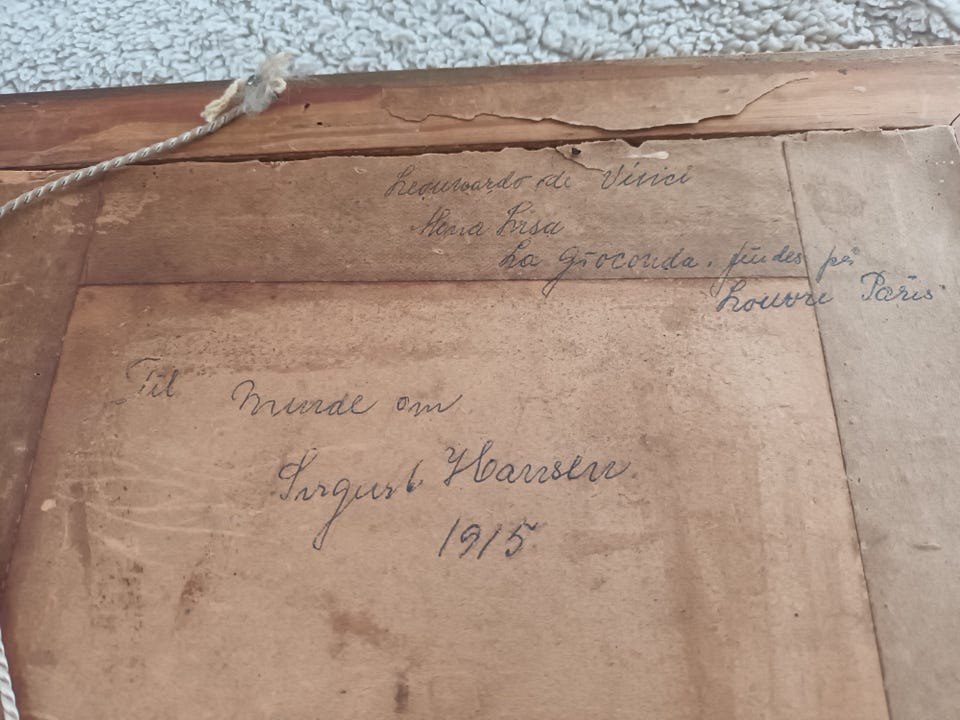 Leonardo de Vinci
Mona Lisa
La Gioconda. findes på
Louvre Paris
Til Minde om
Sigurd Hansen
1915